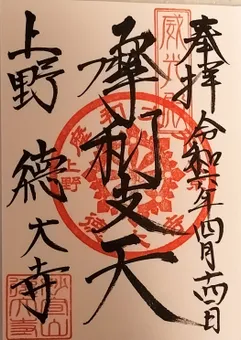 奉拝 令和六年四月十四日
摩利支天
上野 徳大寺